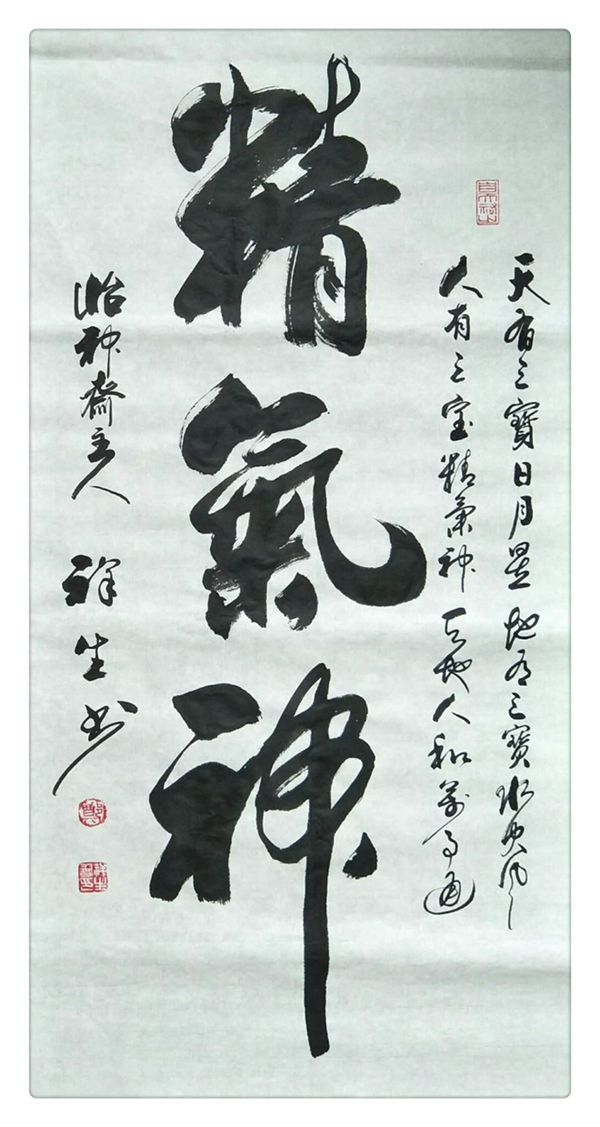 天有三寶日月星地有三寶水火風
人有三宝精氣神天地人和萬事通
精氣神
怡神齋主人
祥生书